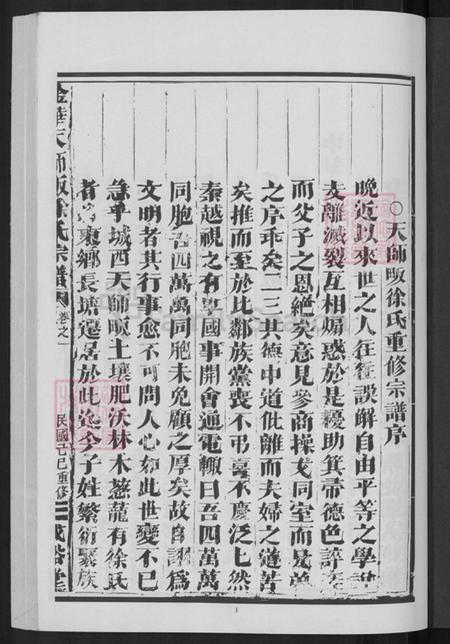 ○天師畈徐氏重修宗譜序
晚近以來世之人往往誤解自由平等之學說
支離滅裂互相煽惑於是耰助箕帚德色誶語
而父子之恩絕矣意見參商操戈同室而兄弟
之序乖矣二三其德中道仳離而夫婦之誼苦
矣推而至於比鄰族黨喪不弔喜不慶泛七然
秦越視之有舉國事開會通電輒曰吾四萬萬
同胞吾四萬萬同胞未免顧之厚矣故自謂爲
文明者其行事愈不可問人心如此世變不已
急乎城西天師畈土壤肥沃林木葱蘢有徐氏
者 襄鄉長塘遷居於此迄今子姓繁衍聚族
金華天師畈徐氏宗譜 卷之一 民國己巳重修